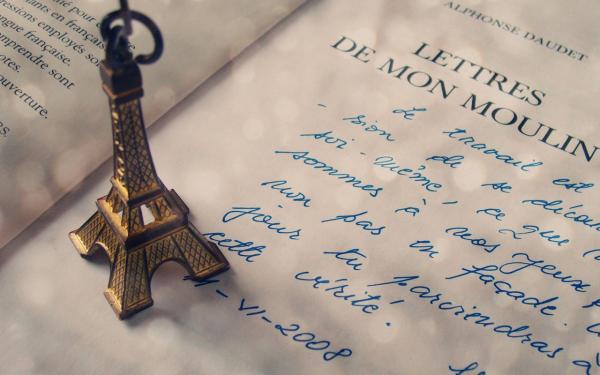 pour
ants en français
ressions employés son
ngue française.
mprendre sont
otes.
ouverture.
s.
ALPHONSE DAUDET
LETTRES
DE MON MOULIN
Le travail est
- sion de se décou
soi-même, ce que
sommes à nos yeux
non pas en façade.
jour tu parviendras à
cette vérité.
VI-2008